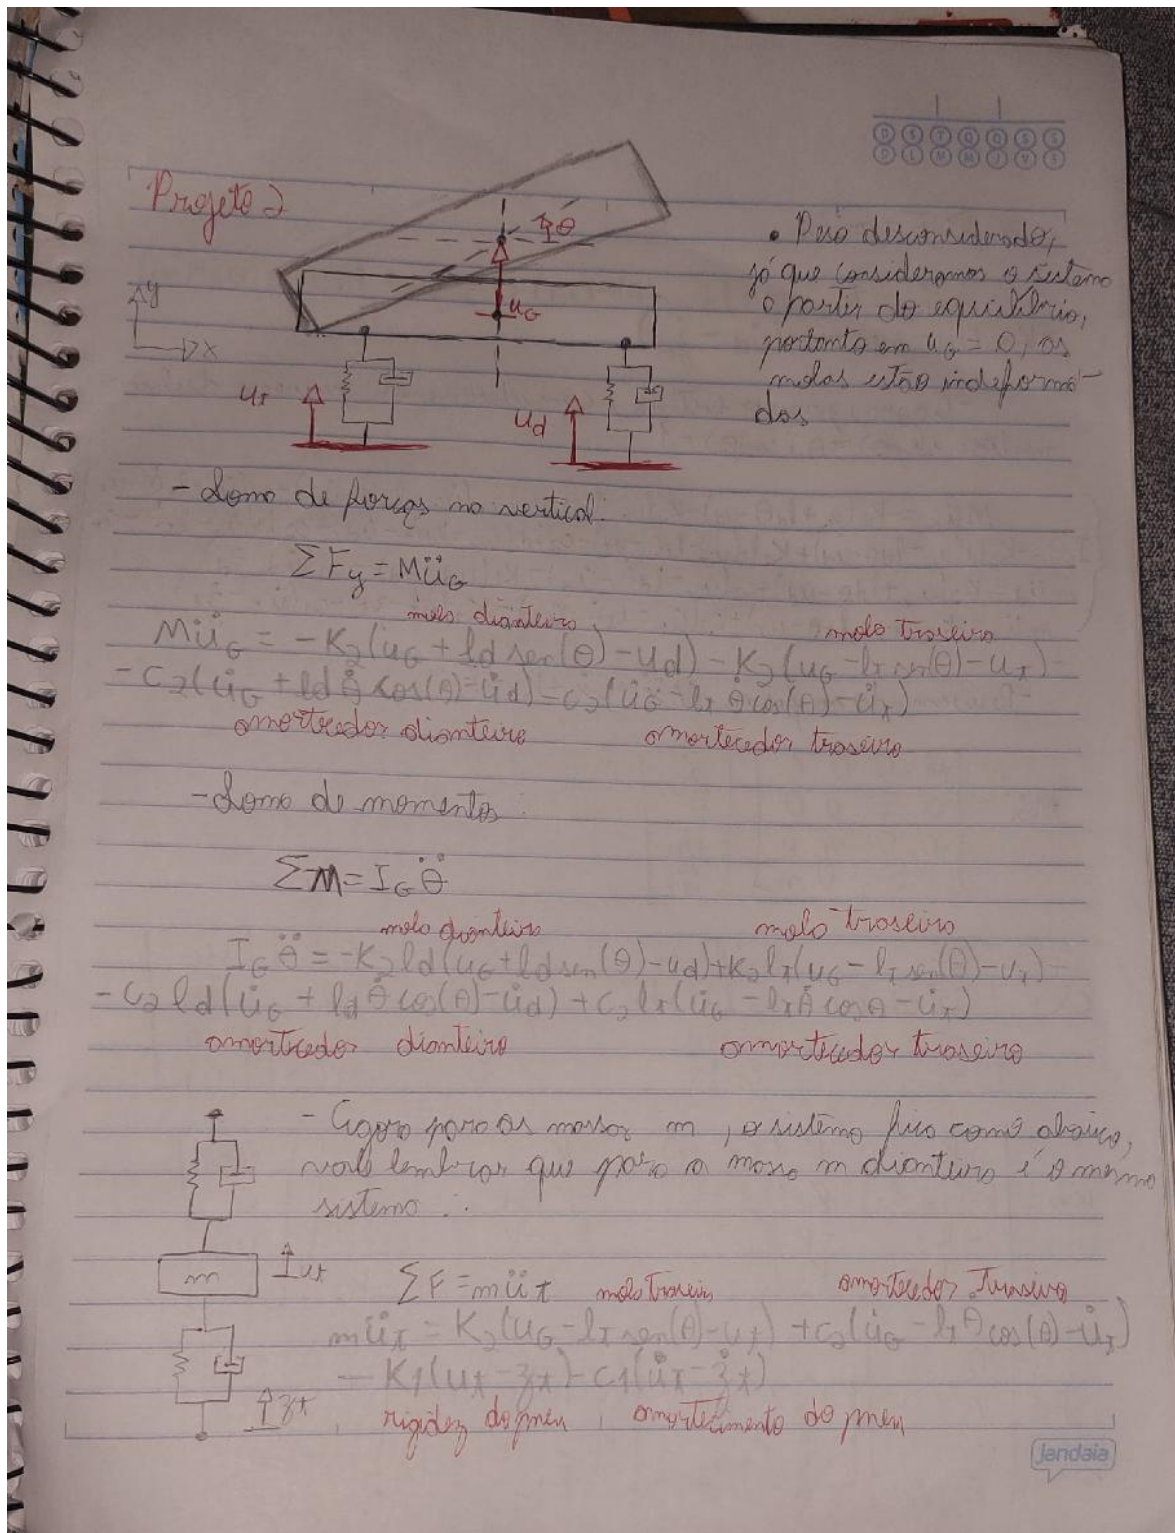 D S T Q Q S S
D L M M J V S
Projeto 2
θ
• Peso desconsiderado,
já que consideramos o sistema
a partir do equilíbrio,
portanto em u_G = 0, as
molas estão indeforma-
das
y
x
u_G
u_t
u_d
- Soma de forças na vertical:
ΣF_y = Mü_G
mola dianteira mola traseira
Mü_G = -K_2(u_G + l_d sen(θ) - u_d) - K_2(u_G - l_t sen(θ) - u_t)
- C_2(u̇_G + l_d θ̇ cos(θ) - u̇_d) - C_2(u̇_G - l_t θ̇ cos(θ) - u̇_t)
amortecedor dianteiro amortecedor traseiro
- Soma de momentos:
ΣM = I_G θ̈
mola dianteira mola traseira
I_G θ̈ = -K_2 l_d(u_G + l_d sen(θ) - u_d) + K_2 l_t(u_G - l_t sen(θ) - u_t)
- C_2 l_d(u̇_G + l_d θ̇ cos(θ) - u̇_d) + C_2 l_t(u̇_G - l_t θ̇ cos θ - u̇_t)
amortecedor dianteiro amortecedor traseiro
- Agora para as massas m, o sistema fica como abaixo,
vale lembrar que para a massa m dianteira é o mesmo
sistema ∴
m
u_t
ΣF = mü_t mola traseira amortecedor traseiro
mü_t = K_2(u_G - l_t sen(θ) - u_t) + C_2(u̇_G - l_t θ̇ cos(θ) - u̇_t)
- K_1(u_t - z_t) - C_1(u̇_t - ż_t)
z_t
rigidez do pneu, amortecimento do pneu
Jandaia